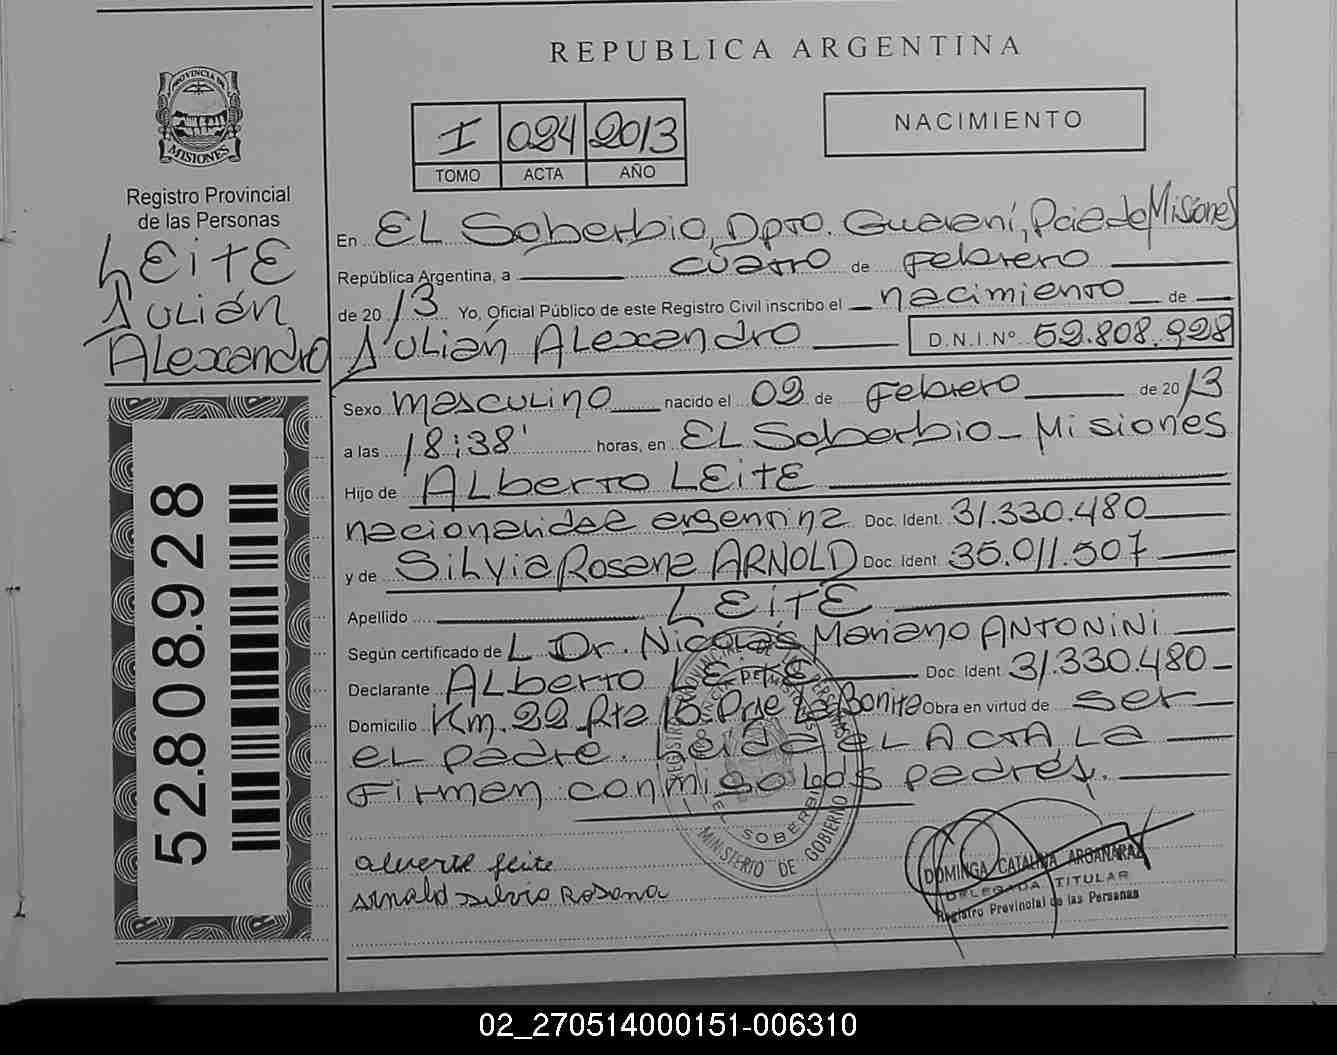 REPUBLICA ARGENTINA
PROVINCIA DE
MISIONES
Registro Provincial
de las Personas
LEITE
Julián
Alexandro
52.808.928
I 024 2013
TOMO ACTA AÑO
NACIMIENTO
En El Soberbio, Dpto. Guaraní, Pcia de Misiones
República Argentina, a cuatro de Febrero
de 2013 Yo, Oficial Público de este Registro Civil inscribo el nacimiento de
Julián Alexandro D.N.I.Nº 52.808.928
Sexo masculino nacido el 02 de Febrero de 2013
a las 18:38' horas, en El Soberbio - Misiones
Hijo de Alberto LEITE
nacionalidad argentina Doc. Ident. 31.330.480
y de Silvia Rosana ARNOLD Doc. Ident. 35.011.507
Apellido LEITE
Según certificado de L Dr. Nicolás Mariano ANTONINI
Declarante Alberto LEITE Doc. Ident. 31.330.480
Domicilio Km. 22 Rta 15 Pje La Bonita Obra en virtud de ser
el padre. Leída el ACTA, La
Firman conmigo los padres.
MINISTERIO DE GOBIERNO
EL SOBERBIO
alverte leite
Arnold silvia Rosana
DOMINGA CATALINA ARGAÑARAZ
DELEGADA TITULAR
Registro Provincial de las Personas
02_270514000151-006310